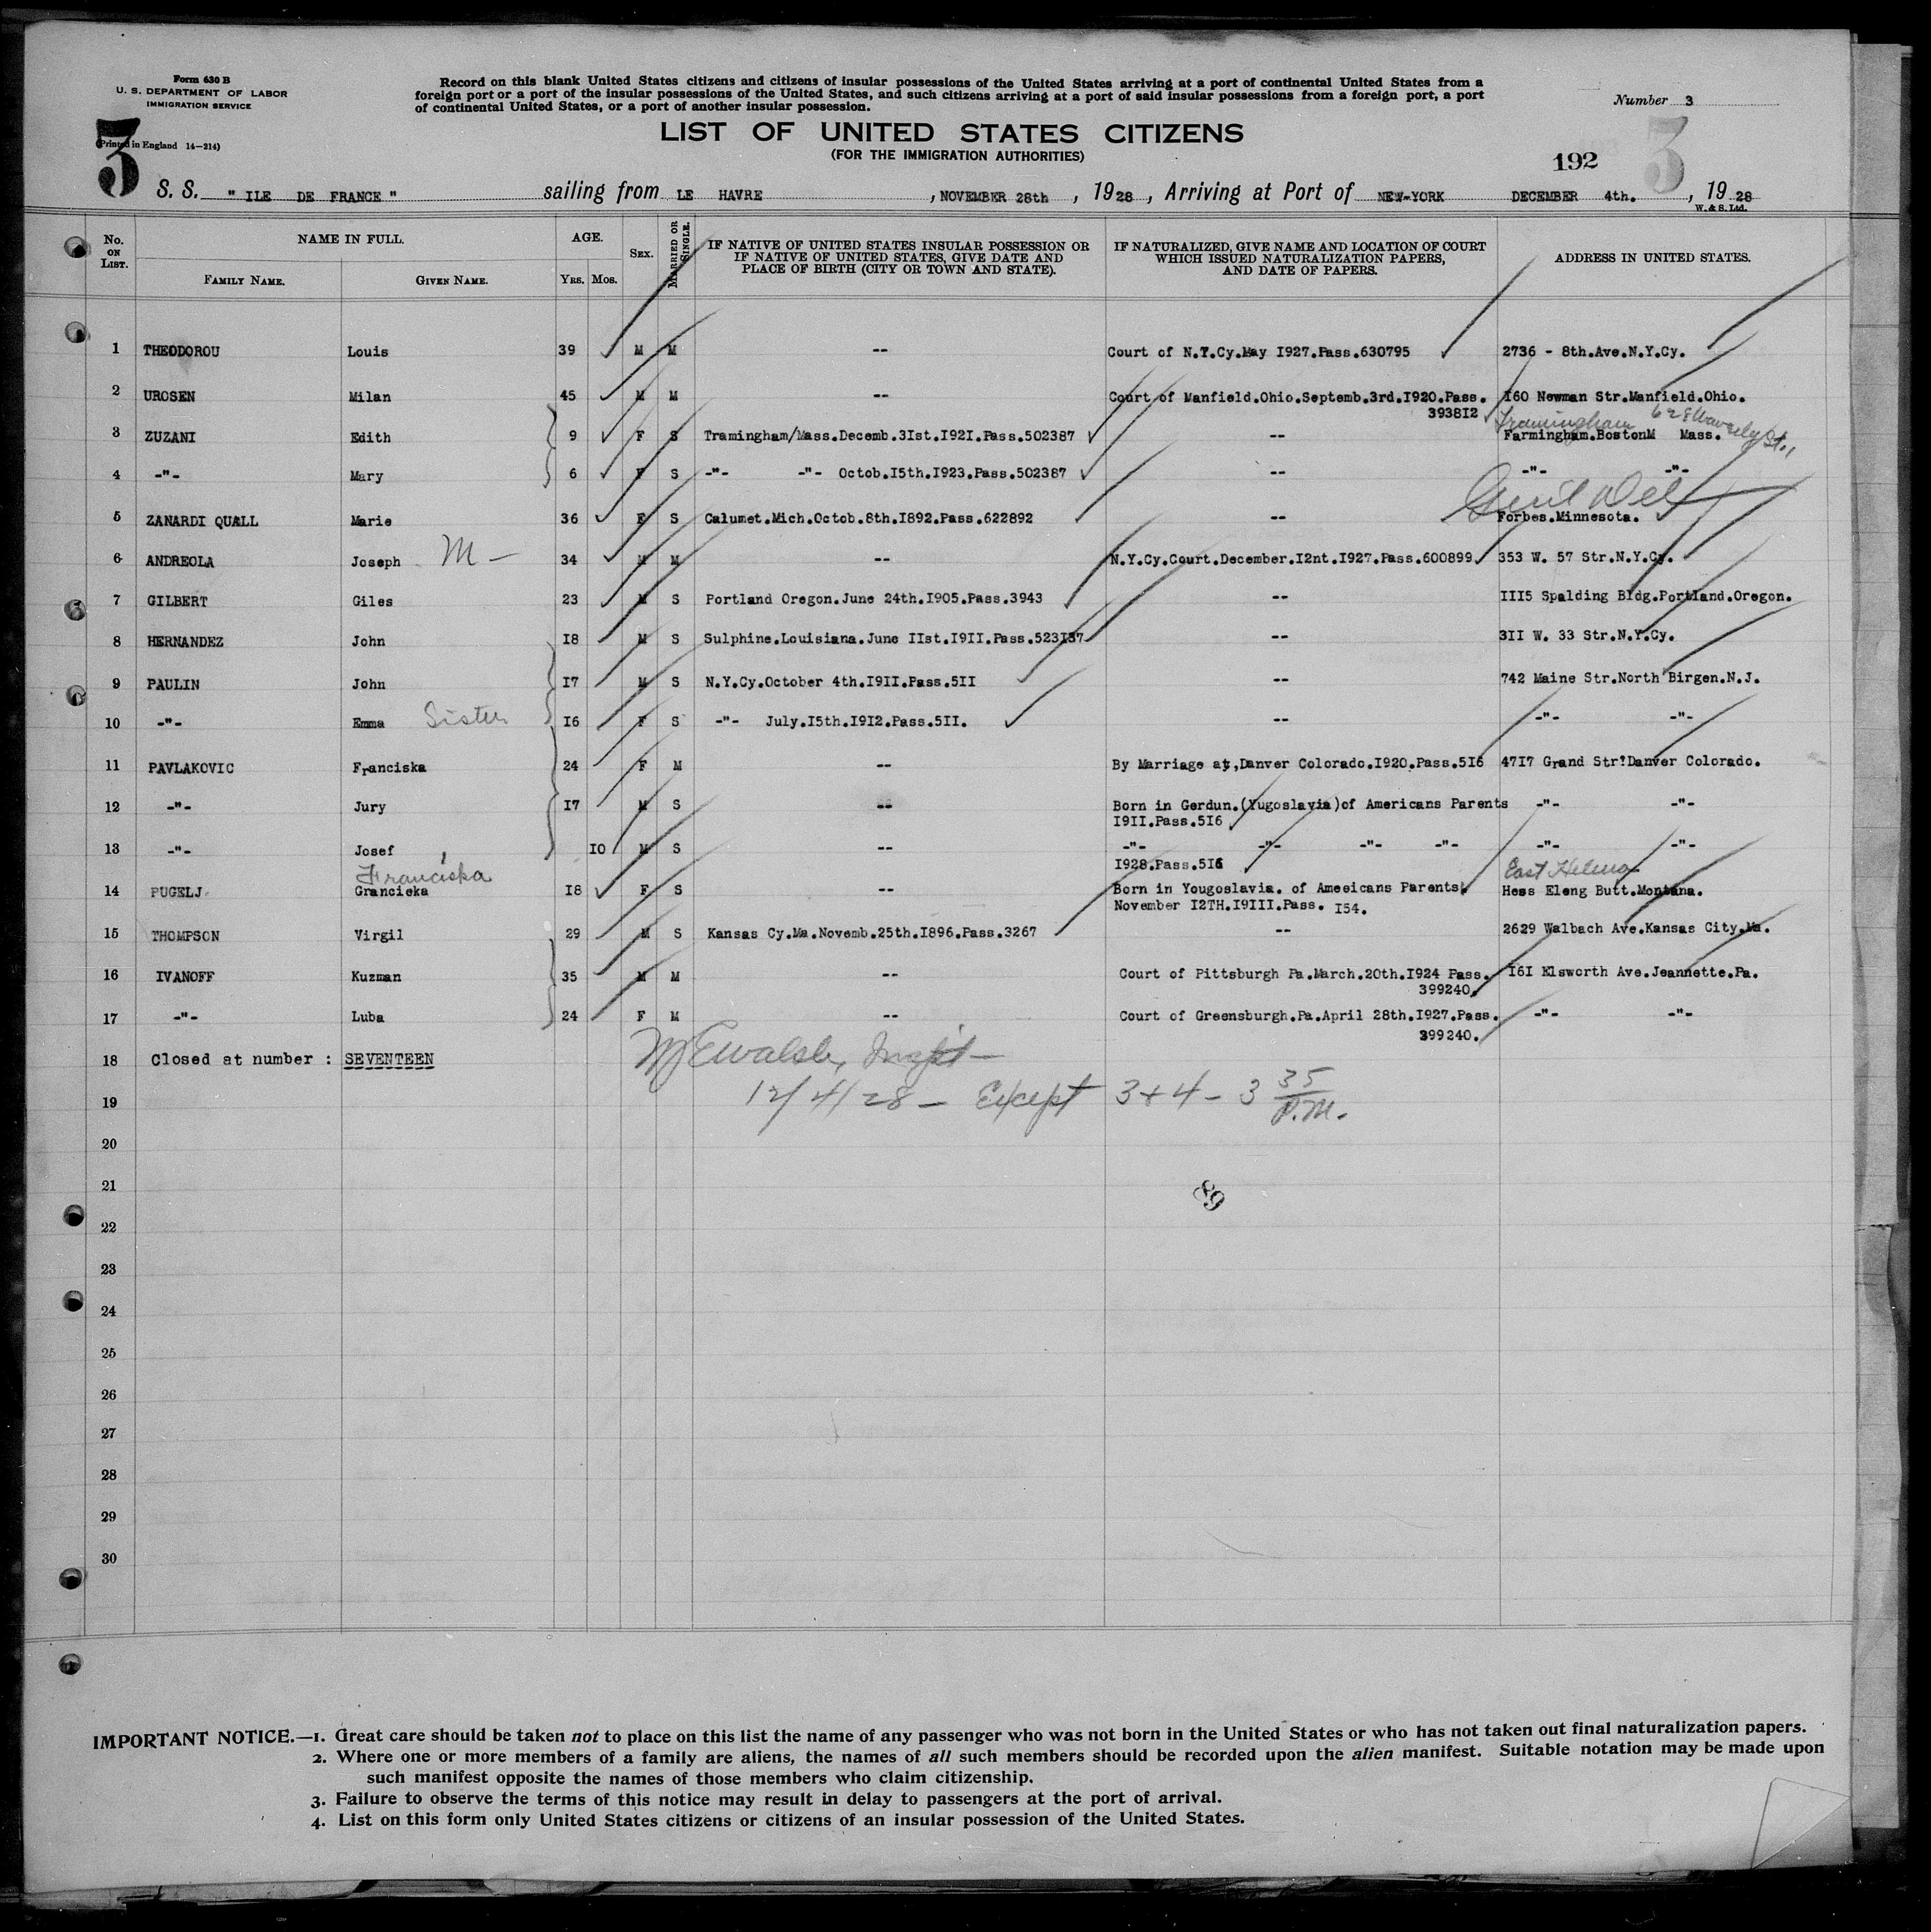 Form 630 B
U. S. DEPARTMENT OF LABOR
IMMIGRATION SERVICE
(Printed in England 14-214)
3
Record on this blank United States citizens and citizens of insular possessions of the United States arriving at a port of continental United States from a
foreign port or a port of the insular possessions of the United States, and such citizens arriving at a port of said insular possessions from a foreign port, a port
of continental United States, or a port of another insular possession.
Number 3
LIST OF UNITED STATES CITIZENS
(FOR THE IMMIGRATION AUTHORITIES)
192 3
S. S. " ILE DE FRANCE " sailing from LE HAVRE , NOVEMBER 28th , 1928 , Arriving at Port of NEW-YORK DECEMBER 4th. , 1928
W. & S. Ltd.
No. ON LIST. NAME IN FULL. AGE. SEX. MARRIED OR SINGLE. IF NATIVE OF UNITED STATES INSULAR POSSESSION OR IF NATIVE OF UNITED STATES, GIVE DATE AND PLACE OF BIRTH (CITY OR TOWN AND STATE). IF NATURALIZED, GIVE NAME AND LOCATION OF COURT WHICH ISSUED NATURALIZATION PAPERS, AND DATE OF PAPERS. ADDRESS IN UNITED STATES.
FAMILY NAME. GIVEN NAME. YRS. MOS.
1 THEODOROU Louis 39 M M -- Court of N.Y.Cy.May I927.Pass.630795 2736 - 8th.Ave.N.Y.Cy.
2 UROSEN Milan 45 M M -- Court of Manfield.Ohio.Septemb.3rd.I920.Pass. I60 Newman Str.Manfield.Ohio.
3938I2
Framingham 628 Waverly St.,
3 ZUZANI Edith 9 F S Tramingham/Mass.Decemb.3Ist.I92I.Pass.502387 -- Farmingham.BostonM Mass.
4 -"- Mary 6 F S -"- -"- Octob.I5th.I923.Pass.502387 -- -"- -"-
5 ZANARDI QUALL Marie 36 F S Calumet.Mich.Octob.8th.I892.Pass.622892 -- Forbes.Minnesota.
6 ANDREOLA Joseph M - 34 M M -- N.Y.Cy.Court.December.I2nt.I927.Pass.600899 353 W. 57 Str.N.Y.Cy.
7 GILBERT Giles 23 M S Portland Oregon.June 24th.I905.Pass.3943 -- III5 Spalding Bldg.Portland.Oregon.
8 HERNANDEZ John I8 M S Sulphine.Louisiana.June IIst.I9II.Pass.523I37 -- 3II W. 33 Str.N.Y.Cy.
9 PAULIN John I7 M S N.Y.Cy.October 4th.I9II.Pass.5II -- 742 Maine Str.North Birgen.N.J.
10 -"- Emma Sister I6 F S -"- July.I5th.I9I2.Pass.5II. -- -"- -"-
11 PAVLAKOVIC Franciska 24 F M -- By Marriage at,Danver Colorado.I920.Pass.5I6 47I7 Grand Str.Danver Colorado.
12 -"- Jury I7 M S -- Born in Gerdun.(Yugoslavia)of Americans Parents -"- -"-
I9II.Pass.5I6
13 -"- Josef IO M S -- -"- -"- -"- -"- -"- -"-
I928.Pass.5I6
Franciska East Helena
14 PUGELJ Grancieka I8 F S -- Born in Yougoslavia. of Ameeicans Parents. Hess Eleng Butt.Montana.
November I2TH.I9III.Pass. I54.
15 THOMPSON Virgil 29 M S Kansas Cy.Ma.Novemb.25th.I896.Pass.3267 -- 2629 Walbach Ave.Kansas City.Ma.
16 IVANOFF Kuzman 35 M M -- Court of Pittsburgh Pa.March.20th.I924 Pass. I6I Elsworth Ave.Jeannette.Pa.
399240.
17 -"- Luba 24 F M -- Court of Greensburgh.Pa.April 28th.I927.Pass. -"- -"-
399240.
18 Closed at number : SEVENTEEN
19 12/4/28 - Except 3+4 - 3 35 P.M.
20
21
89
22
23
24
25
26
27
28
29
30
IMPORTANT NOTICE.—1. Great care should be taken not to place on this list the name of any passenger who was not born in the United States or who has not taken out final naturalization papers.
2. Where one or more members of a family are aliens, the names of all such members should be recorded upon the alien manifest. Suitable notation may be made upon
such manifest opposite the names of those members who claim citizenship.
3. Failure to observe the terms of this notice may result in delay to passengers at the port of arrival.
4. List on this form only United States citizens or citizens of an insular possession of the United States.